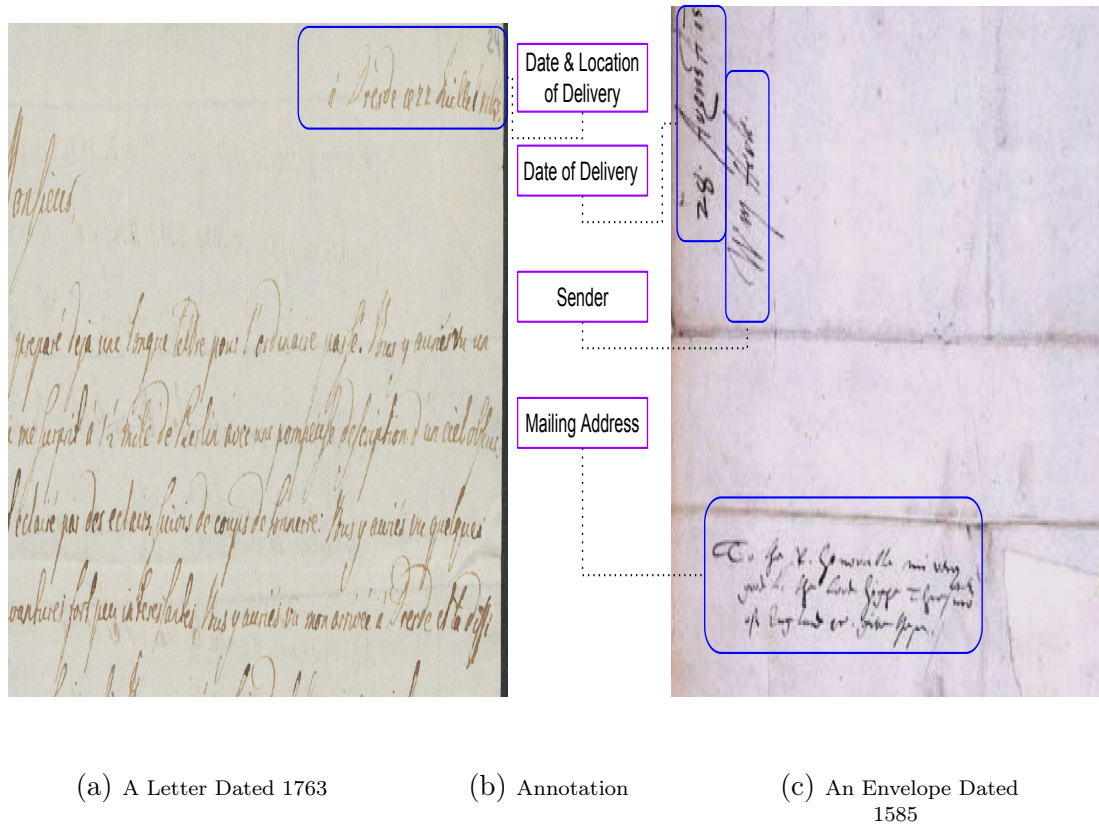 24
à Dresde ce 22 Juillet 1763.
Monsieur,
preparé deja une longue lettre pour l'ordinaire passé. Vous y auriés vu un
me surprit à 1/2 mile de Berlin avec une pompeuse description d'un ciel
éclairé par des eclairs, suivis de coups de tonnerre: Vous y auriés vu quelques
avantures fort peu interessantes, Vous y auriés vu mon arrivée à Dresde et la
Date & Location
of Delivery
Date of Delivery
Sender
Mailing Address
28 August 15
Wm
To the R. Honorable my very
good L. the Lord highe
of England
(a) A Letter Dated 1763
(b) Annotation
(c) An Envelope Dated
1585